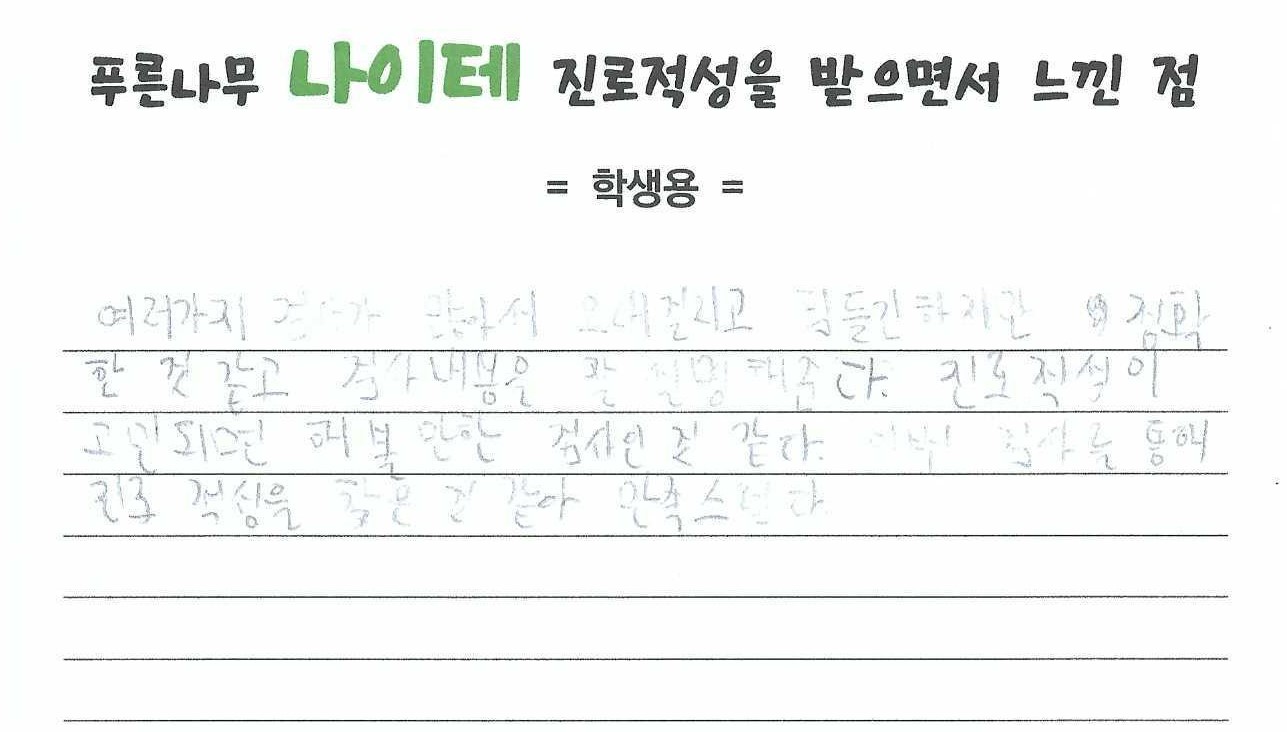 푸른나무 나이테 진로적성을 받으면서 느낀 점
= 학생용 =
여러가지 검사가 많아서 오래걸리고 힘들긴하지만 정확
한 것 같고 검사내용은 잘 설명해준다. 진로적성이
고민되면 해볼 만한 검사인 것 같다. 이번 검사를 통해
진로 적성을 찾은 것 같아 만족스럽다.